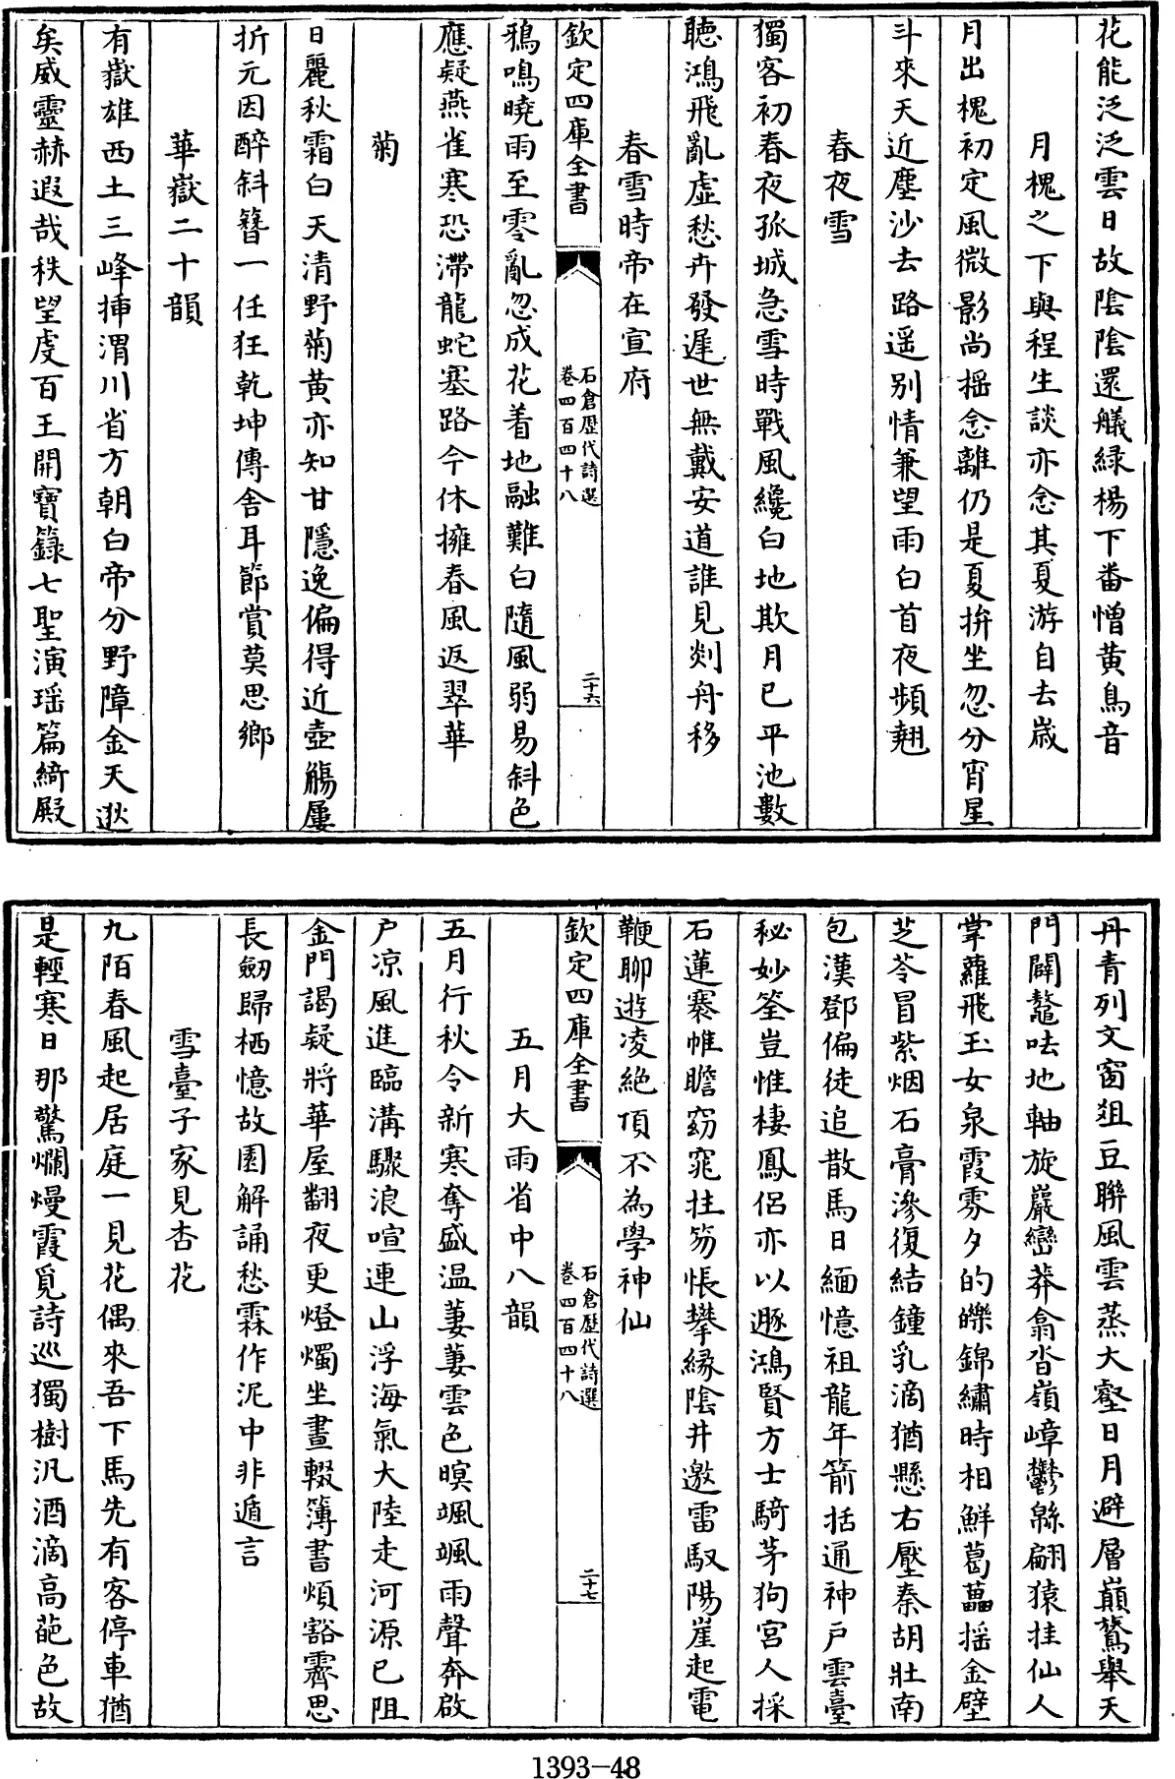 花能泛泛雲日故陰陰還艤緑楊下畨憎黄鳥音
月槐之下與程生談亦念其夏游自去歲
月出槐初定風微影尚揺念離仍是夏拚坐忽分宵星
斗來天近塵沙去路遥别情兼望雨白首夜頻翹
春夜雪
獨客初春夜孤城急雪時戰風纔白地欺月已平池數
聴鴻飛亂虚愁卉發遲世無戴安道誰見剡舟移
春雪時帝在宣府
欽定四庫全書
石倉歴代詩選
卷四百四十八
二十六
鴉鳴曉雨至零亂忽成花着地融難白隨風弱易斜色
應疑燕雀寒恐滯龍蛇塞路今休擁春風返翠華
菊
日麗秋霜白天清野菊黄亦知甘隱逸偏得近壺觴屢
折元因醉斜簪一任狂乾坤傳舍耳節賞莫思鄉
華嶽二十韻
有嶽雄西土三峰揷渭川省方朝白帝分野障金天逖
矣威靈赫遐哉秩望虔百王開寶籙七聖演瑶篇綺殿
丹青列文窗爼豆聨風雲蒸大壑日月避層巔鷟舉天
門闢鼇呿地軸旋巖巒莽翕沓嶺嶂鬱緜翩猿挂仙人
掌蘿飛玉女泉霞雰夕的皪錦繡時相鮮葛藟揺金壁
芝苓冒紫烟石膏滲復結鐘乳滴猶懸右壓秦胡壯南
包漢鄧偏徒追散馬日緬憶祖龍年箭括通神戸雲臺
秘妙筌豈惟棲鳳侣亦以遯鴻賢方士騎茅狗宮人採
石蓮褰帷瞻窈窕拄笏悵攀縁陰井邀雷馭陽崖起電
鞭聊遊凌絶頂不為學神仙
欽定四庫全書
石倉歴代詩選
卷四百四十八
二十七
五月大雨省中八韻
五月行秋令新寒奪盛温萋萋雲色暝颯颯雨聲奔啟
户凉風進臨溝驟浪喧連山浮海氣大陸走河源已阻
金門謁疑將華屋翻夜更燈燭坐晝輟簿書煩豁霽思
長劒歸栖憶故園解誦愁霖作泥中非遁言
雪臺子家見杏花
九陌春風起居庭一見花偶來吾下馬先有客停車猶
是輕寒日那驚爛熳霞覓詩巡獨樹汎酒滴高葩色故
1393-48